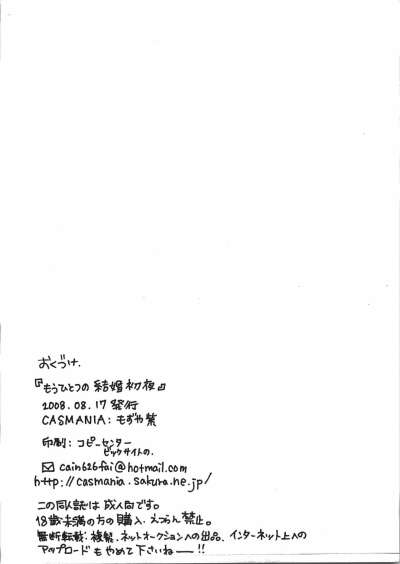 おくづけ.
『もうひとつの結婚初夜』
2008.08.17発行
CASMANIA: もずや紫
印刷: コピーセンター
ビックサイトの.
✉ cain626fai@hotmail.com
http://casmania.sakura.ne.jp/
この同人誌は成人向です。
18歳未満の方の購入、えつらん禁止。
無断転載、複製、ネットオークションへの出品、インターネット上への
アップロードもやめて下さいねー!!